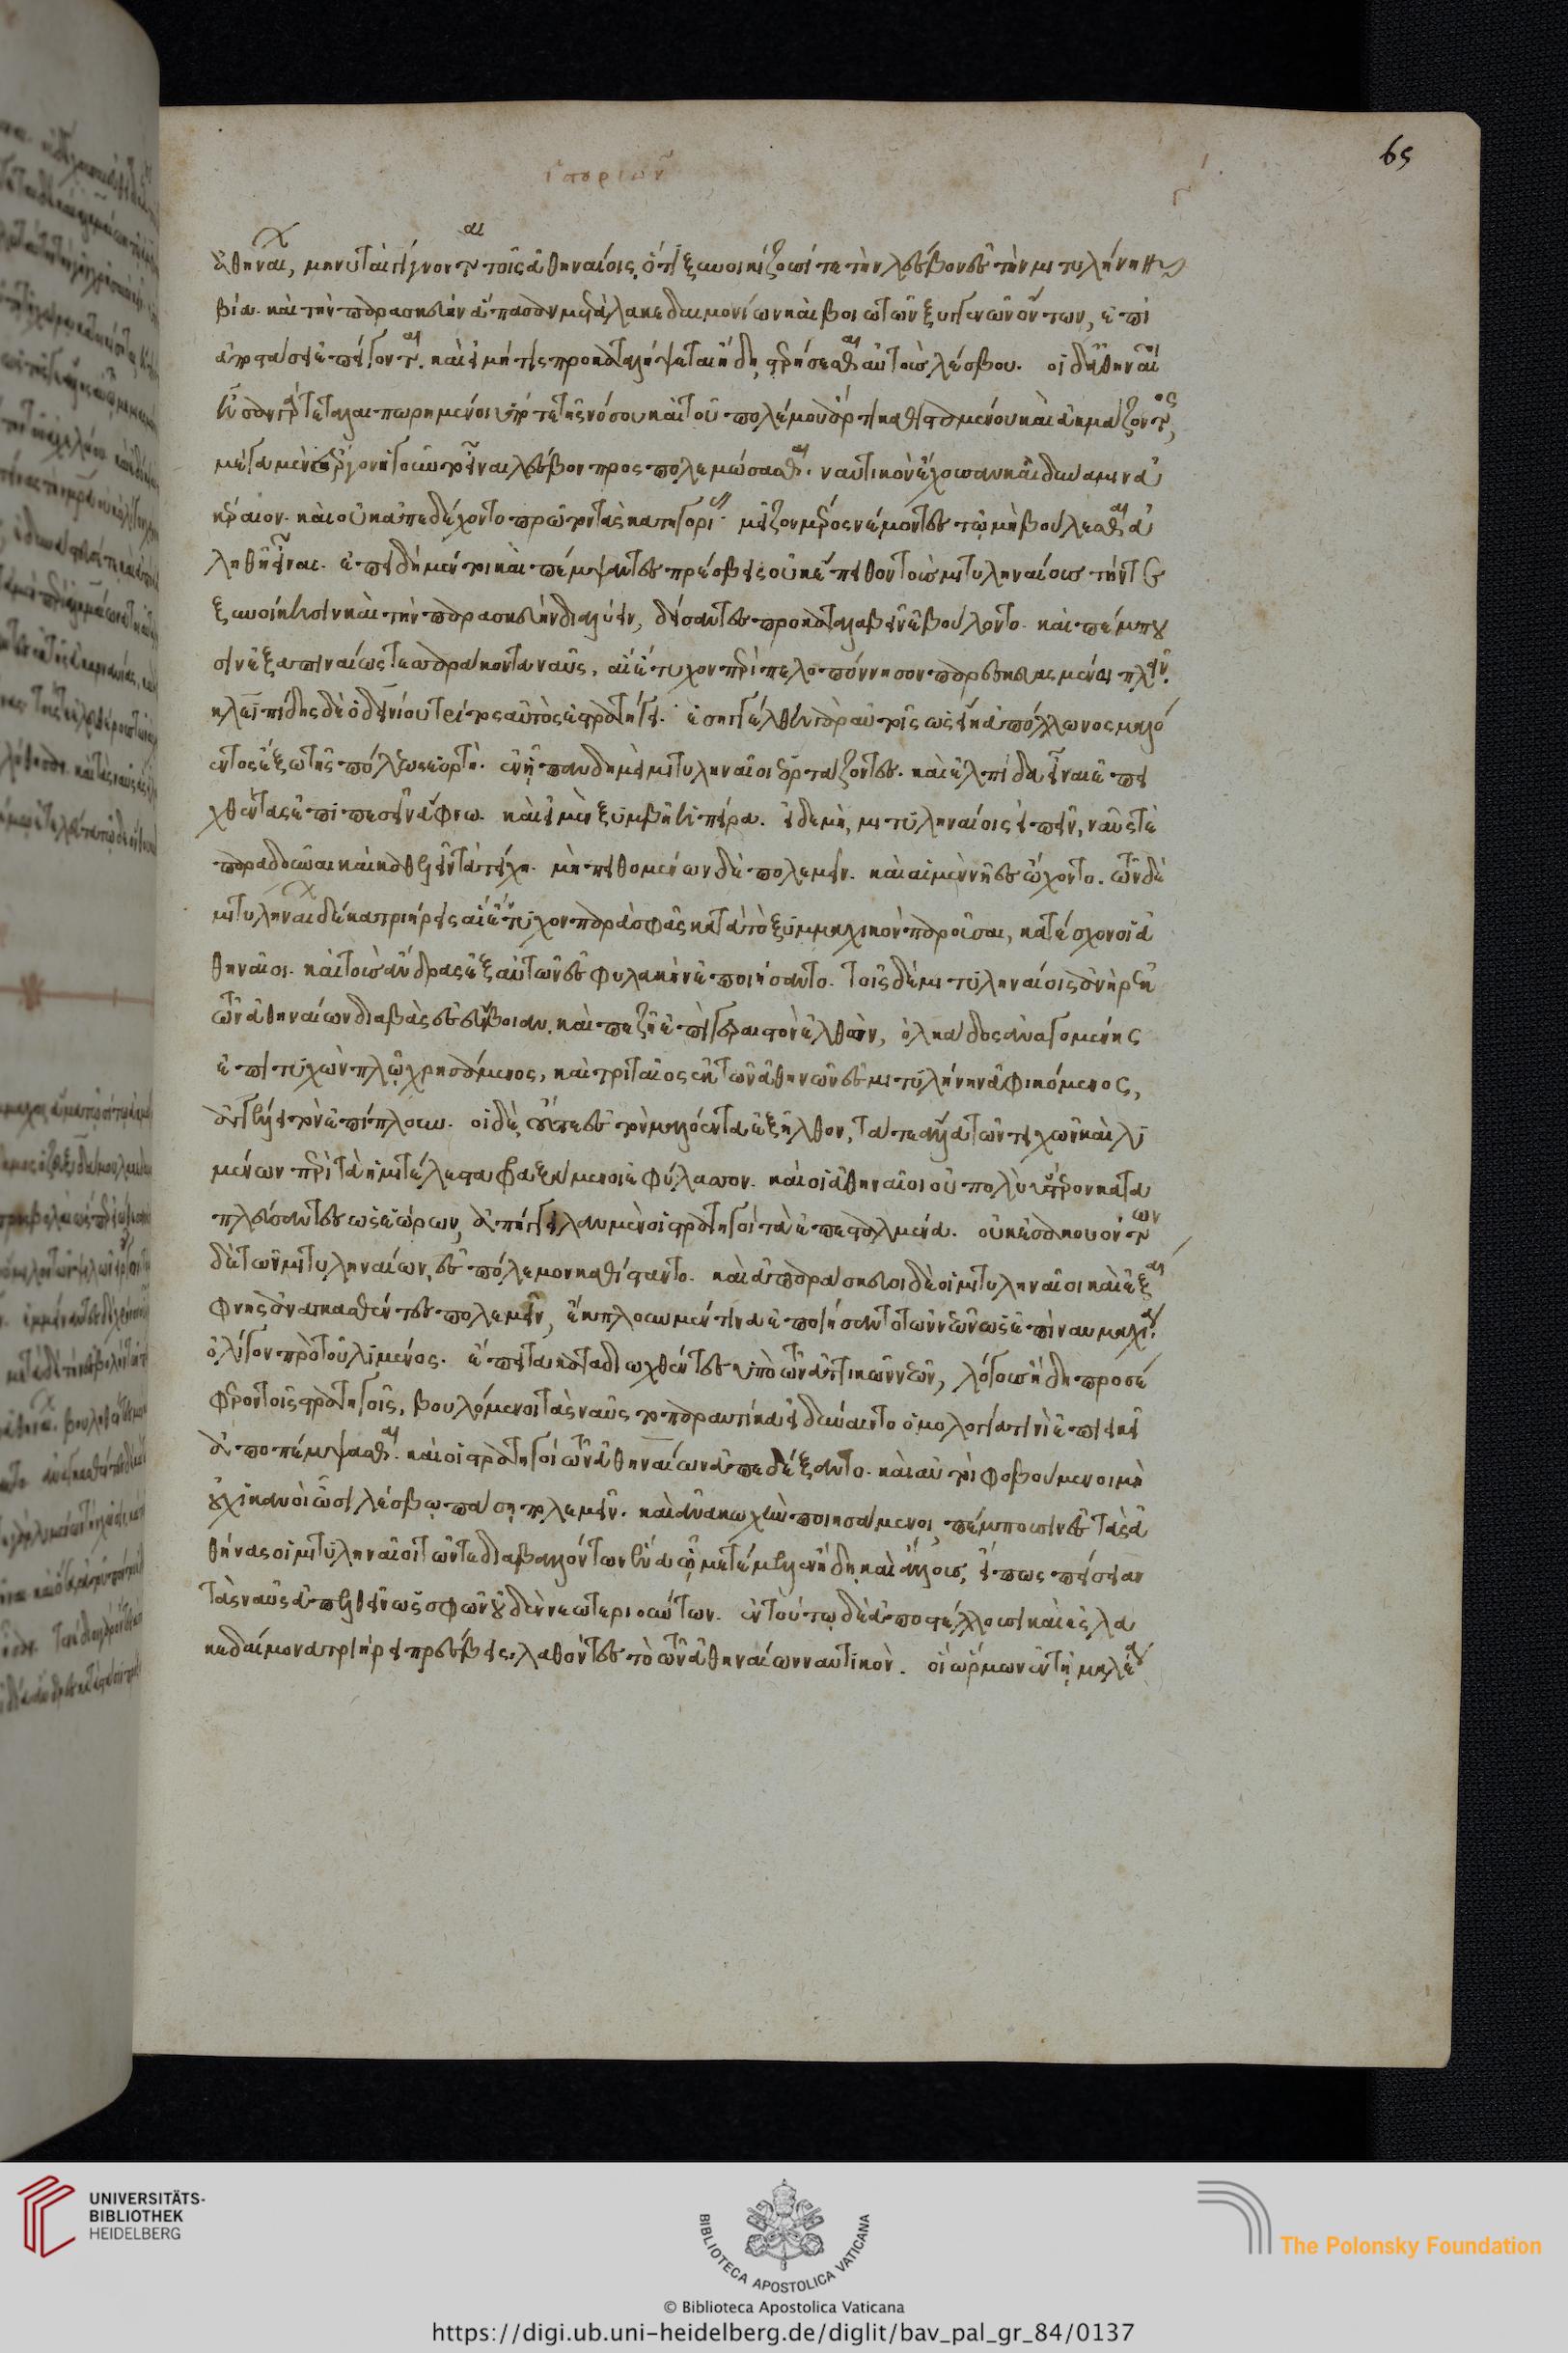 ἱστοριῶν
65
ἀθηναί, μηνυταὶ γίνονται τοῖς ἀθηναίοις, ὅτι ξυνοικίζουσί τε τὴν λέσβον ἐς τὴν μιτυλήνην
βία. καὶ τὴν παρασκευὴν ἅπασαν μετὰ λακεδαιμονίων καὶ βοιωτῶν ξυγγενῶν ὄντων, ἐπὶ
ἀποστάσει ἐπείγονται. καὶ εἰ μή τις προκαταλήψεται ἤδη, στερήσεσθαι αὐτοὺς λέσβου. οἱ δ' ἀθηναῖοι
ἦσαν γὰρ τεταλαιπωρημένοι ὑπό τε τῆς νόσου καὶ τοῦ πολέμου ἄρτι καθισταμένου καὶ ἀκμάζοντος,
μέγα μὲν ἔργον ἡγοῦντο εἶναι λέσβον προσπολεμώσασθαι. ναυτικὸν ἔχουσαν καὶ δύναμιν ἀ
κέραιον. καὶ οὐκ ἀπεδέχοντο πρῶτον τὰς κατηγορίας. μεῖζον μέρος νέμοντες τῷ μὴ βούλεσθαι ἀ
ληθῆ εἶναι. ἐπειδὴ μέντοι καὶ πέμψαντες πρέσβεις οὐκ ἔπειθον τοὺς μιτυληναίους τήν τε
ξυνοίκησιν καὶ τὴν παρασκευὴν διαλύειν, δείσαντες προκαταλαβεῖν ἐβούλοντο. καὶ πέμπου
σιν ἐξαπιναίως τεσσαράκοντα ναῦς, αἳ ἔτυχον περὶ πελοπόννησον παρεσκευασμέναι πλεῖν.
κλεϊππίδης δὲ ὁ δεινίου τρίτος αὐτὸς ἐστρατήγει. ἐσηγγέλθη γὰρ αὐτοῖς ὡς εἴη ἀπόλλωνος μαλό
εντος ἔξω τῆς πόλεως ἑορτή. ἐν ᾗ πανδημεὶ μιτυληναῖοι ἑορτάζοντες. καὶ ἐλπίδα εἶναι ἐπει
χθέντας ἐπιπεσεῖν ἄφνω. καὶ εἰ μὲν ξυμβῆ ἡ πεῖρα. εἰ δὲ μὴ, μιτυληναίοις εἰπεῖν, ναῦς τὲ
παραδοῦναι καὶ καθελεῖν τὰ τείχη. μὴ πειθομένων δὲ πολεμεῖν. καὶ αἱ μὲν νῆες ᾤχοντο. τῶν δὲ
μιτυληναι δέκα τριήρεις αἳ ἔτυχον παρὰ σφᾶς κατὰ τὸ ξυμμαχικὸν παροῦσαι, κατέσχον οἱ ἀ
θηναῖοι. καὶ τοὺς ἄνδρας ἐξ αὐτῶν ἐς φυλακὴν ἐποιήσαντο. τοῖς δὲ μιτυληναίοις ἀνὴρ ἐκ
τῶν ἀθηναίων διαβὰς ἐς εὔβοιαν. καὶ πεζῆ ἐπὶ γεραιστὸν ἐλθὼν, ὁλκάδος ἀναγομένης
ἐπιτυχὼν πλῷ χρησάμενος, καὶ τριταῖος ἐκ τῶν ἀθηνῶν ἐς μιτυλήνην ἀφικόμενος,
ἀγγέλλει τὸν ἐπίπλουν. οἱ δὲ, οὔτε ἐς τὸν μαλόεντα ἐξῆλθον, τά τε ἄλλα τῶν τειχῶν καὶ λι
μένων περὶ τὰ ἡμιτέλεστα φαξάμενοι ἐφύλασσον. καὶ οἱ ἀθηναῖοι οὐ πολὺ ὕστερον κατα
πλεύσαντες ὡς ἑώρων, ἀπήγγειλαν μὲν οἱ στρατηγοὶ τὰ ἐπεσταλμένα. οὐκ ἐσακουόντων
δὲ τῶν μιτυληναίων, ἐς πόλεμον καθίσταντο. καὶ ἀπαράσκευοι δὲ οἱ μιτυληναῖοι καὶ ἐξαί
φνης ἀναγκασθέντες πολεμεῖν, ἔκπλουν μέν τινα ἐποιήσαντο τῶν νεῶν ὡς ἐπὶ ναυμαχίαν.
ὀλίγον πρὸ τοῦ λιμένος. ἔπειτα καταδιωχθέντες ὑπὸ τῶν ἀττικῶν νεῶν, λόγους ἤδη προσέ
φερον τοῖς στρατηγοῖς, βουλόμενοι τὰς ναῦς τὸ παραυτίκα εἰ δύναιντο ὁμολογία τινὶ ἐπιεικεῖ
ἀποπέμψασθαι. καὶ οἱ στρατηγοὶ τῶν ἀθηναίων ἀπεδέξαντο. καὶ αὐτοὶ φοβούμενοι μὴ
οὐχ ἱκανοὶ ὦσι λέσβῳ πάσῃ πολεμεῖν. καὶ ἀνακωχὴν ποιησάμενοι, πέμπουσιν ἐς τὰς ἀ
θήνας οἱ μιτυληναῖοι τῶν τε διαβαλλόντων ἕνα ᾧ μετέμελεν ἤδη καὶ ἄλλους, εἴ πως πείσειαν
τὰς ναῦς ἀπελθεῖν ὡς σφῶν οὐδὲν νεωτεριούντων. ἐν τούτῳ δὲ ἀποστέλλουσι καὶ ἐς λα
κεδαίμονα τριήρει πρέσβεις. λαθόντες τὸ τῶν ἀθηναίων ναυτικὸν. οἳ ὥρμουν ἐν τῇ μαλέα
UNIVERSITÄTS-
BIBLIOTHEK
HEIDELBERG
BIBLIOTECA APOSTOLICA VATICANA
The Polonsky Foundation
© Biblioteca Apostolica Vaticana
https://digi.ub.uni-heidelberg.de/diglit/bav_pal_gr_84/0137